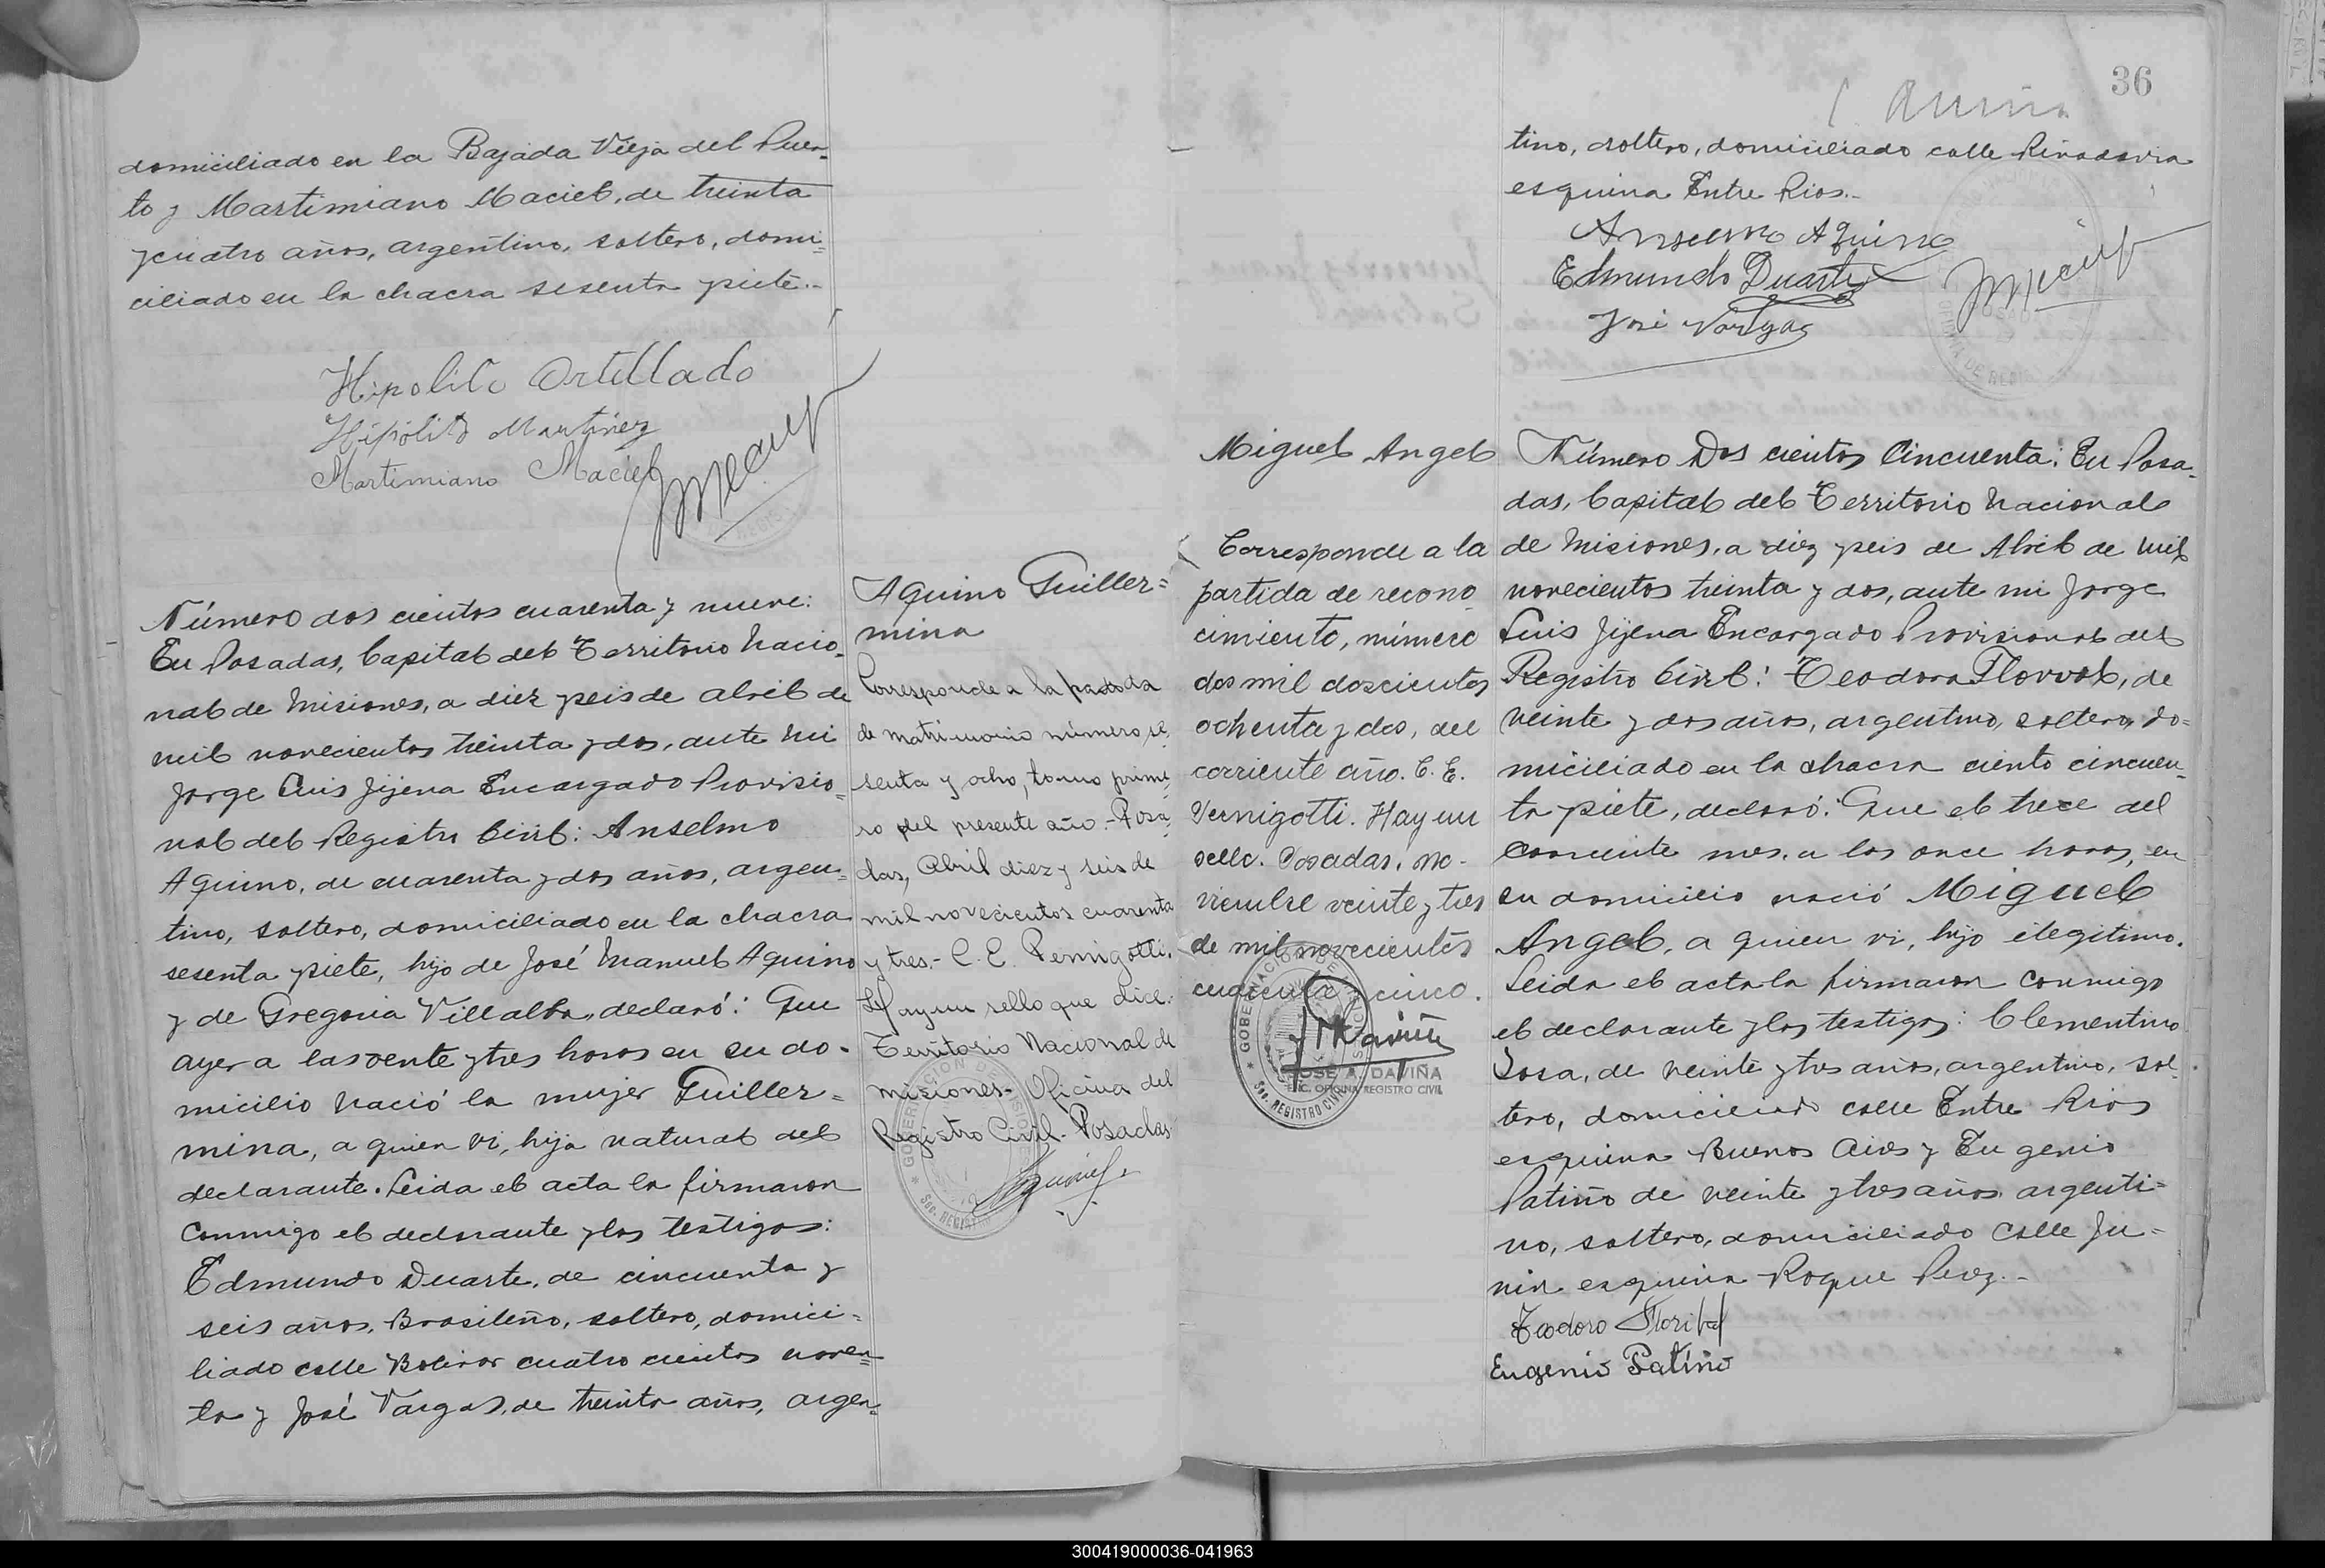 domiciliado en la Bajada Vieja del Puer-
to y Martimiano Maciel, de treinta
y cuatro años, argentino, soltero, domi=
ciliado en la chacra sesenta y siete.-
Hipolito Ortellado
Hipólito Martinez
Martimiano Maciel
Número dos cientos cuarenta y nueve:
En Posadas, Capital del Territorio Nacio-
nal de Misiones, a diez y seis de abril de
mil novecientos treinta y dos, ante mi
Jorge Luis Jijena Encargado Provisio=
nal del Registro Civil: Anselmo
Aquino, de cuarenta y dos años, argen=
tino, soltero, domiciliado en la chacra
sesenta y siete, hijo de José Manuel Aquino
y de Gregoria Villalba, declaró: Que
ayer a las vente y tres horas en su do-
micilio nació la mujer Guiller=
mina, a quien vi, hija natural del
declarante. Leida el acta la firmaron
conmigo el declarante y los testigos:
Edmundo Duarte, de cincuenta y
seis años, Brasileño, soltero, domici=
liado calle Bolivar cuatro cientos noven=
ta y José Vargas, de treinta años, argen=
Aquino Guiller=
mina
Corresponde a la partida
de matrimonio número se
senta y ocho, tomo prime
ro del presente año.- Posa
das, Abril diez y seis de
mil novecientos cuarenta
y tres.- C. E. Pernigotti.
Hay un sello que dice:
Territorio Nacional de
Misiones- Oficina del
Registro Civil- Posadas
36
tino, soltero, domiciliado calle Rivadavia
esquina Entre Rios.-
Anselmo Aquino
Edmundo Duarte
José Vargas
Miguel Angel
Corresponde a la
partida de recono
cimiento, número
dos mil doscientos
ochenta y dos, del
corriente año. C. E.
Vernigotti. Hay un
sello. Posadas, no-
viembre veinte y tres
de mil novecientos
cuarenta y cinco.
GOBERNACION DE MISIONES
Sec. REGISTRO CIVIL
JOSE A. DAVIÑA
ENC. OFICINA REGISTRO CIVIL
Número Dos cientos Cincuenta: En Posa-
das, Capital del Territorio Nacional
de Misiones, a diez y seis de Abril de mil
novecientos treinta y dos, ante mi Jorge
Luis Jijena Encargado Provisional del
Registro Civil: Teodoro Florval, de
veinte y dos años, argentino, soltero, do=
miciliado en la chacra ciento cincuen-
ta y siete, declaró: Que el trece del
corriente mes, a las once horas, en
su domicilio nació Miguel
Angel, a quien vi, hijo ilegitimo.
Leida el acta la firmaron conmigo
el declarante y los testigos: Clementino
Sosa, de veinte y tres años, argentino, sol-
tero, domiciliado calle Entre Rios
esquina Buenos Aires y Eugenio
Patiño de veinte y tres años, argenti=
no, soltero, domiciliado Calle Ju-
nin esquina Roque Perez.-
Teodoro
Eugenio Patiño
300419000036-041963